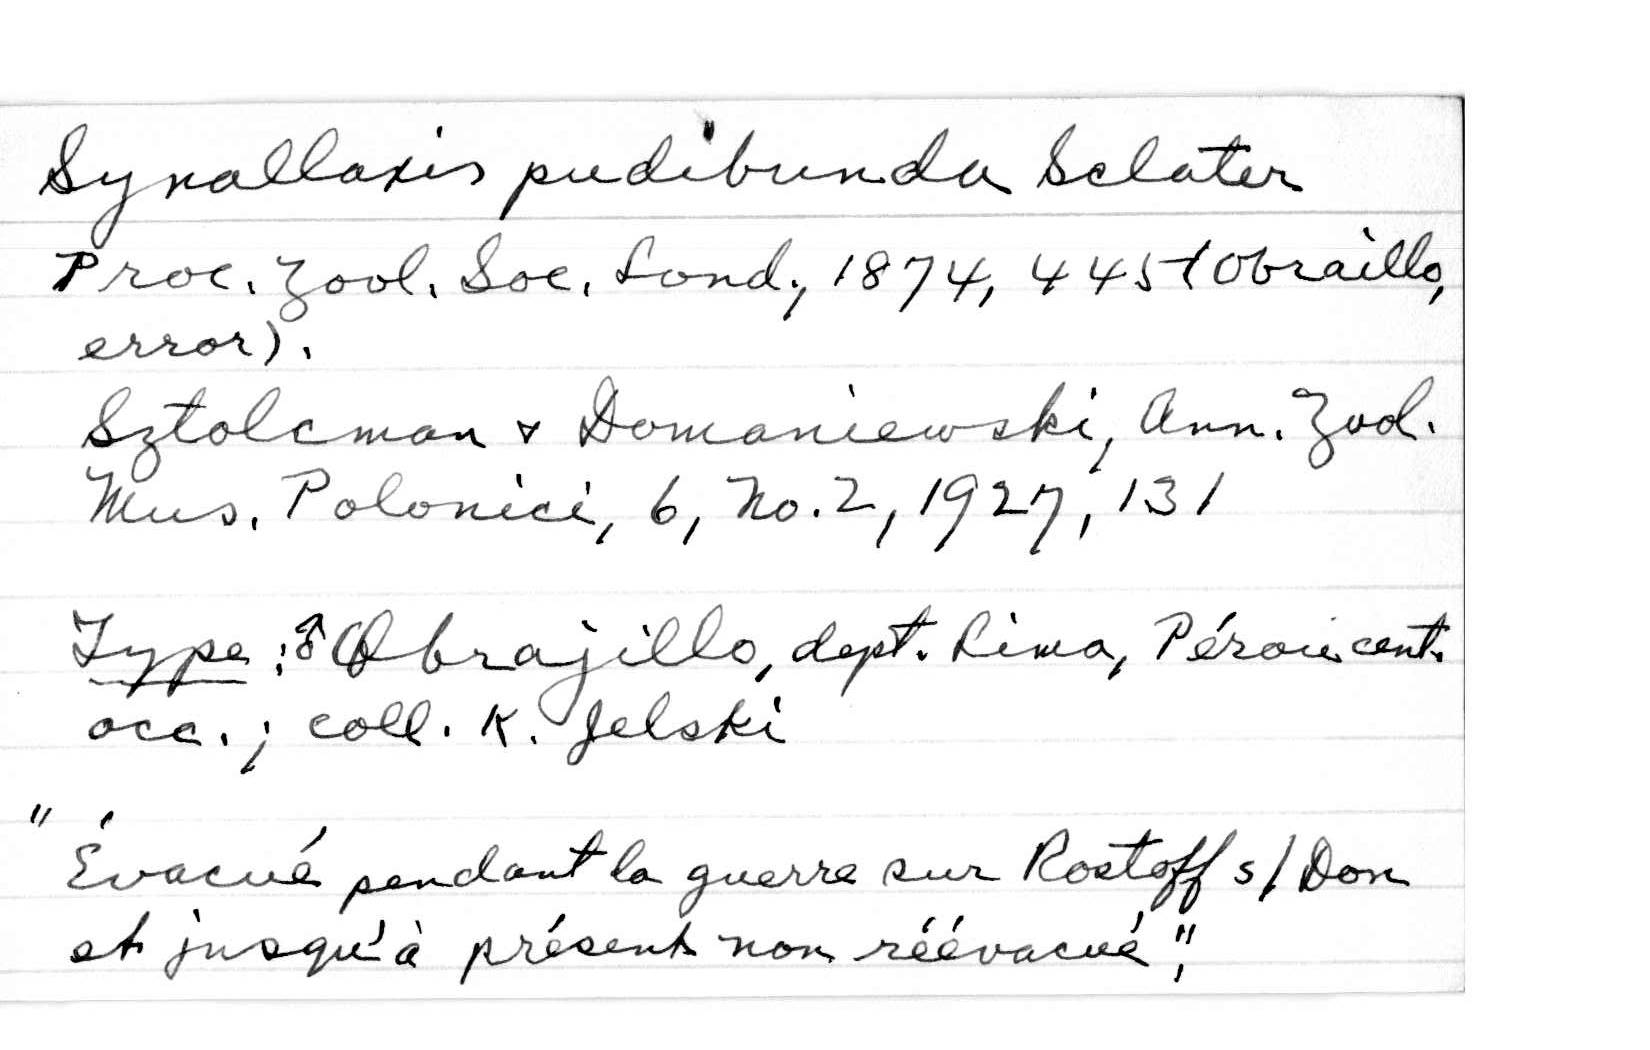 Synallaxis pudibunda Sclater
Proc. Zool. Soc. Lond., 1874, 445 (Obraillo,
error).
Sztolcman & Domaniewski, Ann. Zool.
Mus. Polonici, 6, No. 2, 1927, 131
Type: ♂ Obrajillo, dept. Lima, Pérou cent.
occ.; coll. K. Jelski
"Évacué pendant la guerre sur Rostoff s/Don
et jusqu'à présent non réévacué".